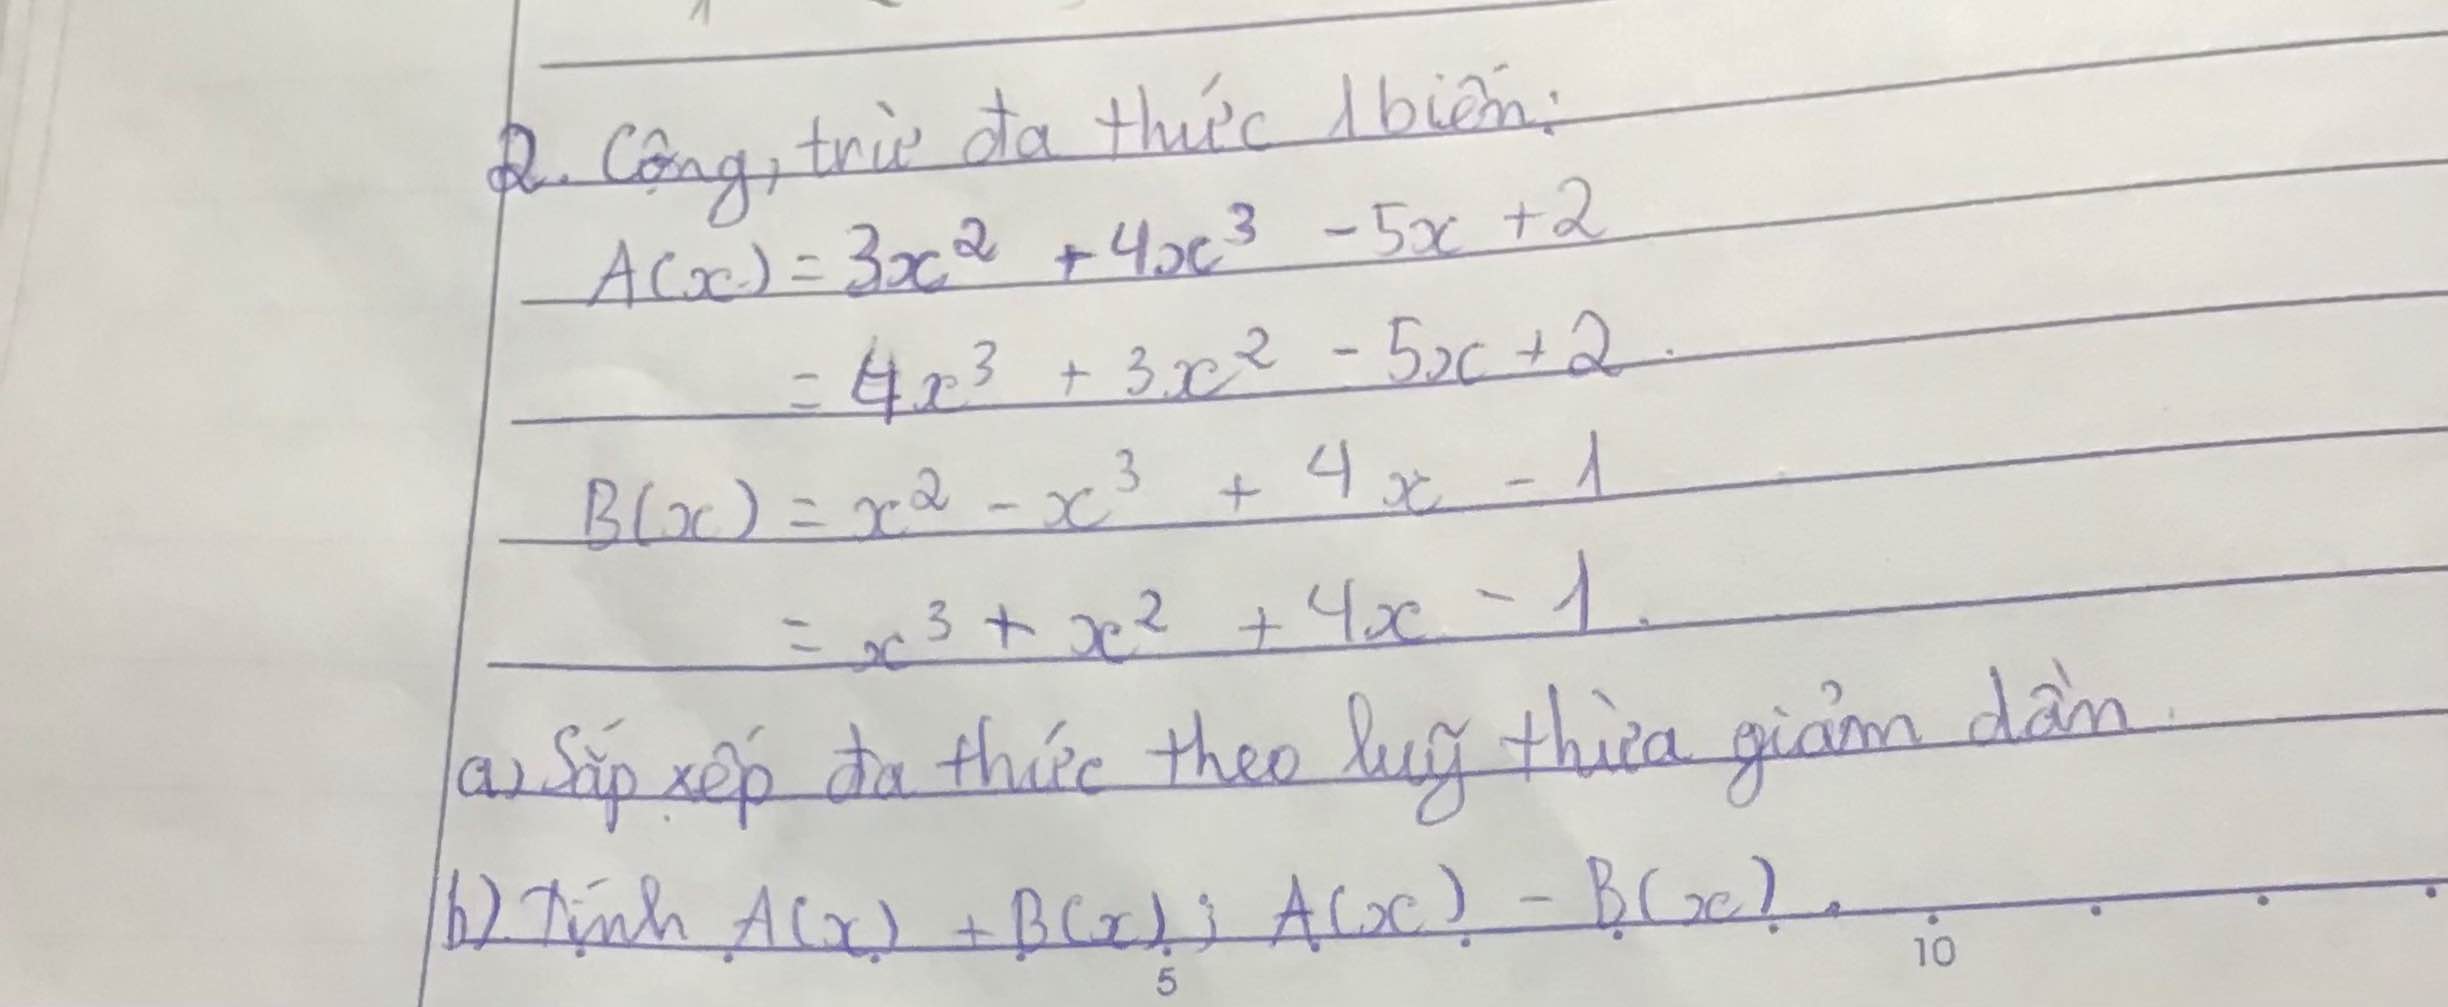 2. Cộng, trừ đa thức 1 biến:
A(x) = 3x² + 4x³ - 5x + 2
= 4x³ + 3x² - 5x + 2.
B(x) = x² - x³ + 4x - 1
= x³ + x² + 4x - 1.
a) Sắp xếp đa thức theo luỹ thừa giảm dần.
b) Tính A(x) + B(x); A(x) - B(x).
5 10